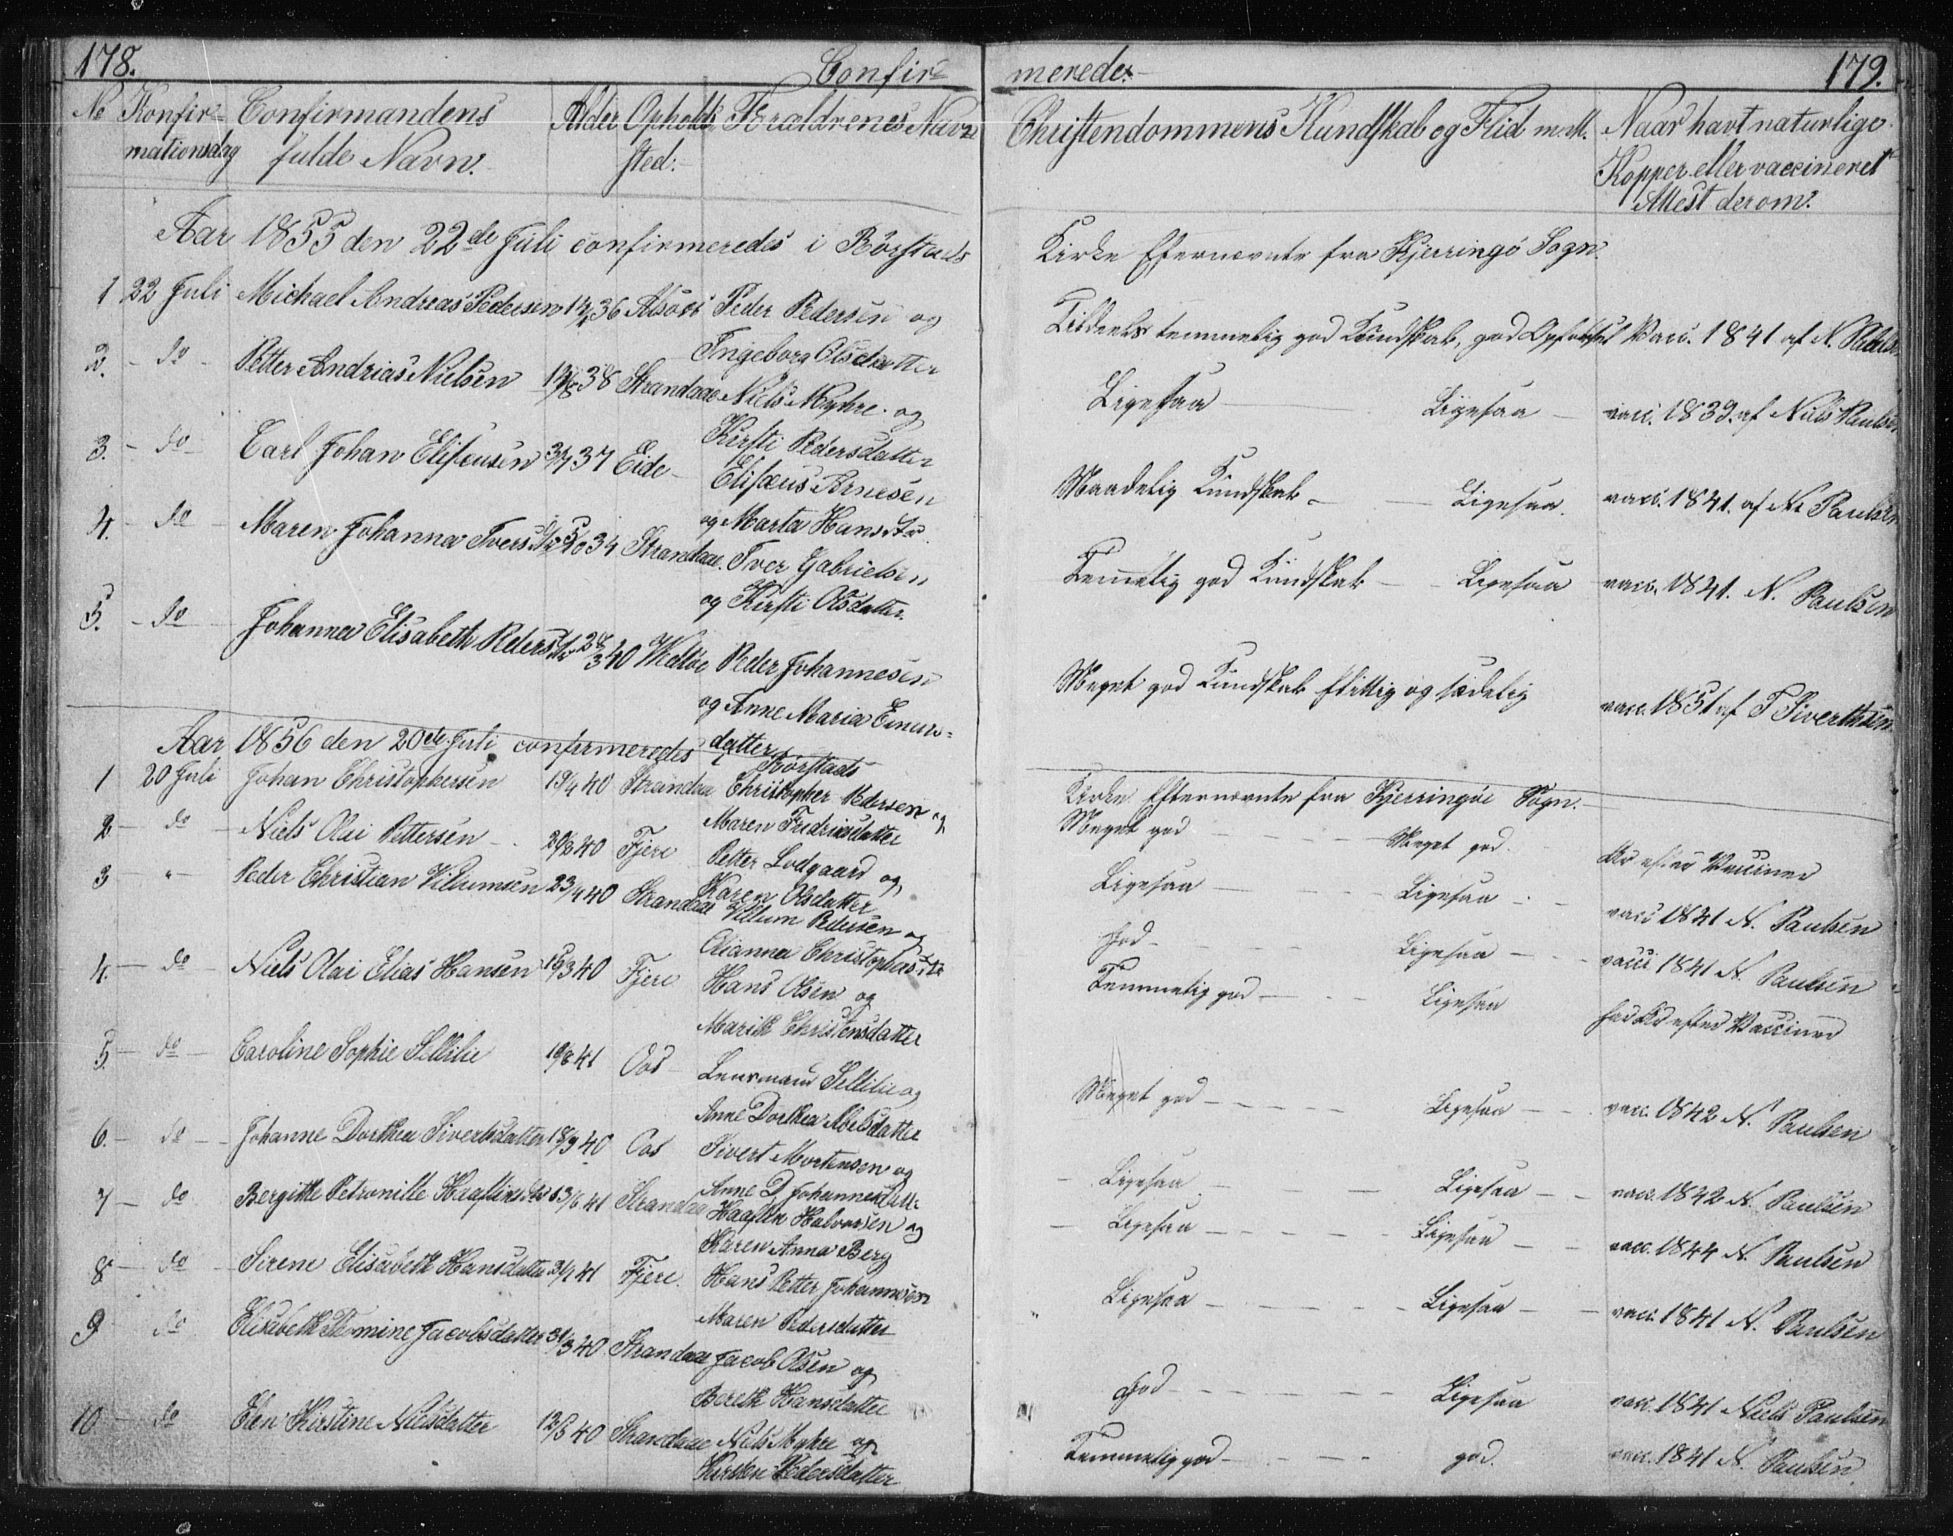 178.
Confir-
No Konfir- Confirmandens Alder Opholds Forældrenes Navn
mationsdag fulde Navn. sted.
Aar 1855 den 22de Juli confirmeredes i Rörstads
1 22 Juli Michael Andreas Pedersen 36 Peder Pedersen og
Ingeborg Olsdatter
2. - do - Petter Andrias Nielsen 38 Strandaae Niels Myhre og
Kirsti Pedersdatter
3. - do - Carl Johan Eliseusen 37 Eide - Elisæus Arnesen
og Marta Hansdtr.
4. - do - Maren Johanna Iversdtr 34 Strandaae. Iver Gabrielsen
og Kirsti Olsdatter.
5. - do - Johanna Elisabeth Pedersdtr 28/3 40 Peder Johannesen
og Anne Maria
datter
Aar 1856 den 20de Juli confirmeredes i Rörstads
1 20 Juli Johan Christophersen 19/4 40 Strandaa Christopher Pedersen og
Maren Fredriksdatter
2 - do - Niels Olai Pettersen 40 Fjere Petter Lodgaard og
Karen Olsdatter
3 " Peder Christian Villumsen 23/4 40 Strandaae Villum Pedersen og
Olianna Christophersdtr
4. - do - Niels Olai Elias Hansen 40 Fjere Hans Olsen og
Marith Christensdatter
5. - do - Caroline Sophie Sellilie 41 Oos Lensmand Sellilie og
Anne Dorthea Abelsdatter
6. - do - Johanne Dorthea Sivertsdatter 40 Oos Sivert Mortensen og
Anne D. Johannesdatter
7 - do Bergitte Petronille Haaflinsdtr 41 Strandaa Haaflin Halvorsen og
Karen Anna Berg
8 - do Sirene Elisabeth Hansdatter 41 Fjere. Hans Petter Johannesen
Maren Pedersdatter
9 do Elisabeth Jacobsdatter 31/3 40 Strandaae Jacob Olsen og
Bereth Hansdatter
10 - do Elen Kirstine Nielsdatter 12/5 40 Strandaae Niels Myhre og
Kirsten Pedersdatter
merede.
179.
Christendommens Kundskab og Flid m.M. Naar havt naturlige
Kopper eller vaccineret
Attest derom.
Kirke Efternævnte fra Kjerringö Sogn.
temmelig god Kundskab, god Opförsel Vacc. 1841 af N.
Ligesaa - Ligesaa - vacc. 1839. af Niels Paulsen
Maadelig Kundskab - Ligesaa. vacc. 1841. af N. Paulsen
Temmelig god Kundskab - Ligesaa vacc. 1841. N. Paulsen
Meget god Kundskab flittig og sædelig vacc. 1851 af T Siverthsen
Kirke Efternævnte fra Kjerringöe Sogn.
Meget god - Meget god. efter Vacciner
Ligesaa - Ligesaa - vacc 1841 N. Paulsen
God - Ligesaa - vacc 1841 N. Paulsen
Temmelig god - Ligesaa har efter Vacciner
Meget god - Ligesaa - vacc. 1842 N. Paulsen
- Ligesaa - Ligesaa - vacc. 1842 N. Paulsen
- Ligesaa - Ligesaa - vacc. 1844 N. Paulsen
Ligesaa - Ligesaa - vacc. 1841 N. Paulsen
God - Ligesaa vacc. 1841 Niels Paulsen
Temmelig god - god. vacc. 1841 N. Paulsen